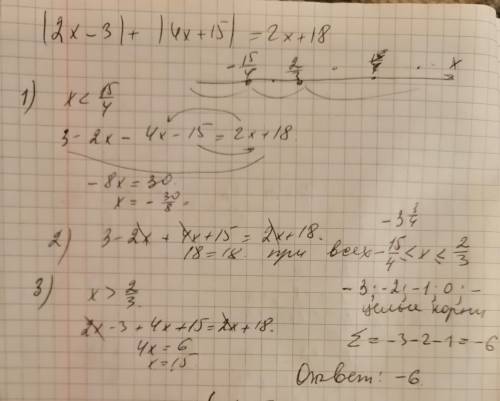 |2x-3| + |4x+15| = 2x+18
-15/4 2/3 x
1) x < 15/4
3-2x-4x-15=2x+18
-8x=30
x=-30/8
2) 3-2x+4x+15=2x+18.
18=18. при всех -15/4 ≤ x ≤ 2/3
-3 3/4
-3; -2; -1; 0; -
целые корни
Σ = -3-2-1 = -6
3) x > 2/3.
2x-3+4x+15=2x+18.
4x=6
x=15
Ответ: -6.